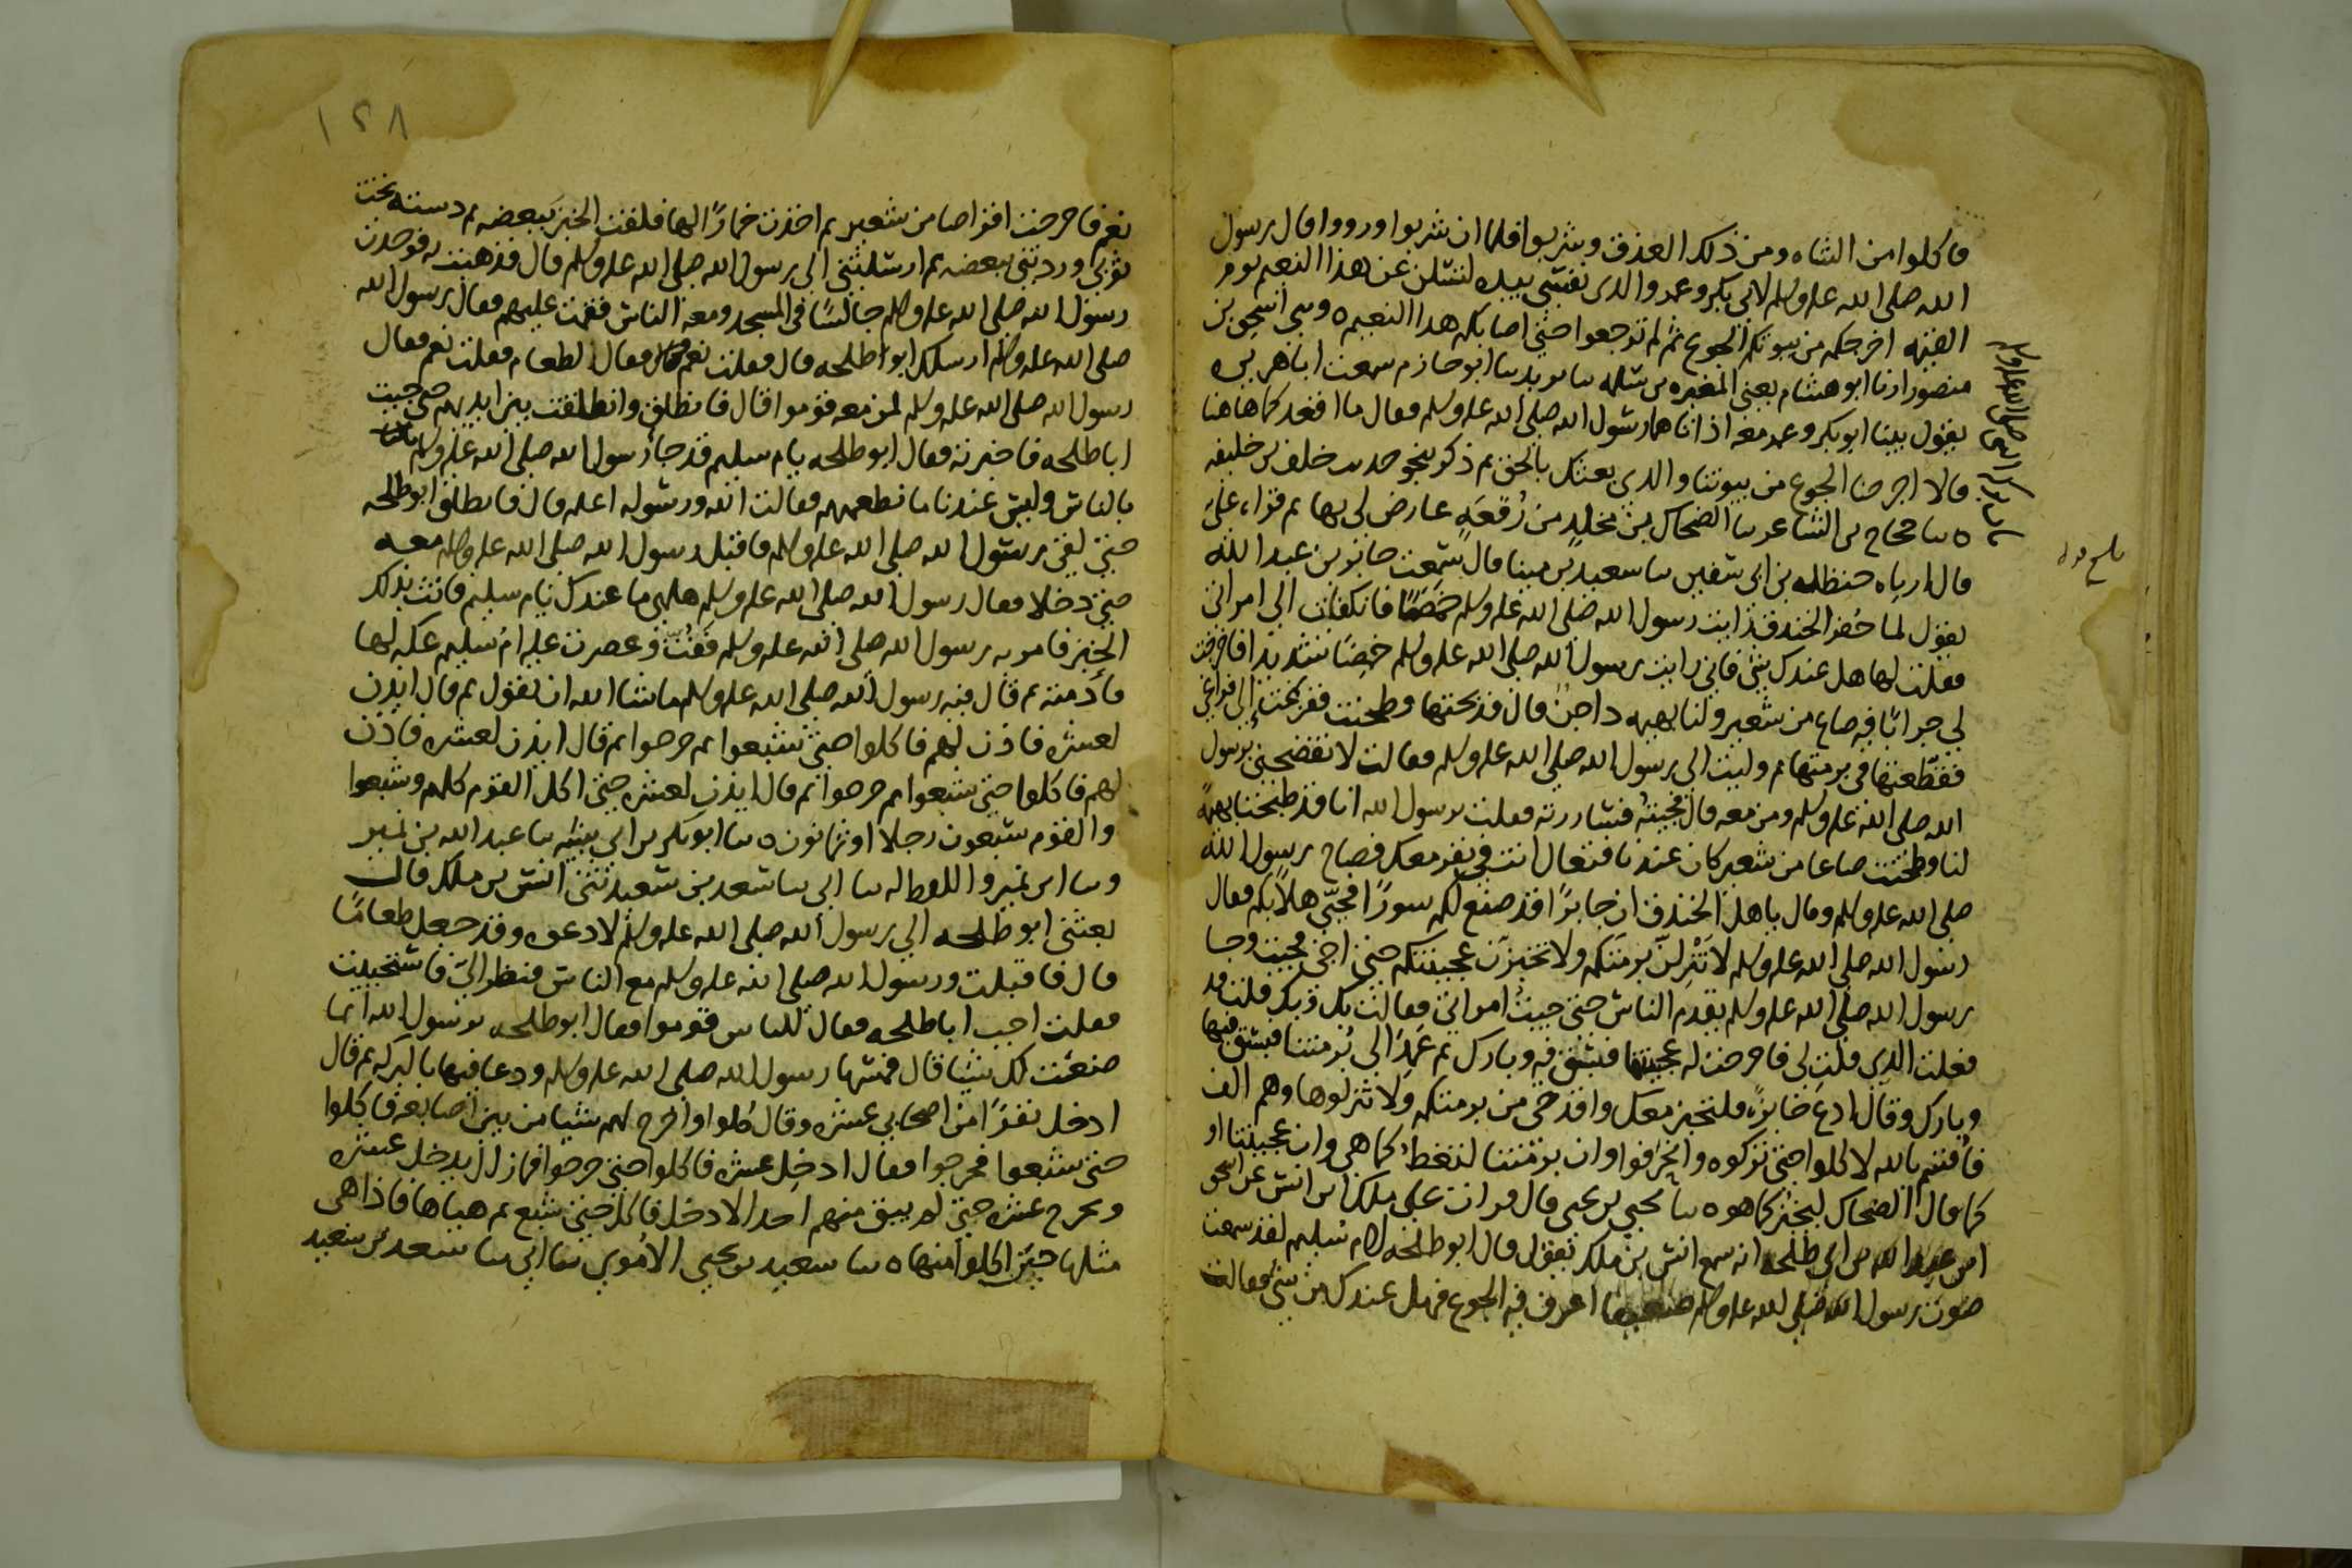 فاكلوا من الشاه ومن ذلك العذق وشربوا فلما ان شربوا ورووا قال رسول
الله صلى الله علىه وسلم لابي بكر وعمر والذي نفسي بيده لتسئلن عن هذا النعيم يوم
القيمه اخرجكم من بيوتكم الجوع ثم لم ترجعوا حتى اصابكم هذا النعيم ٥ وثني اسحق بن
منصور انا ابو هشام يعني المغيره بن سلمه ثنا يزيد ثنا ابو حازم سمعت ابا هريره
يقول بينا ابو بكر وعمر معه اذ اتاهما رسول الله صلى الله علىه وسلم فقال ما اقعدكما هاهنا
قالا اخرجنا الجوع من بيوتنا والذي بعثك بالحق ثم ذكر نحو حديث خلف بن خليفه
٥ ثنا حجاج بن الشاعر ثنا الضحاك بن مخلد من رقعة عارض لي بها ثم قراه علي
قال ارباه حنظله بن ابي سفين ثنا سعيد بن مينا قال سمعت جابر بن عبد الله
يقول لما حفر الخندق رايت رسول الله صلى الله علىه وسلم خمصا فانكفات الى امراتي
فقلت لها هل عندك شي فاني رايت رسول الله صلى الله علىه وسلم خمصا شديدا فاخرجت
لي جرابا فيه صاع من شعير ولنا بهيمه داجن قال فذبحتها وطحنت ففرغت الى فراغي
فقطعتها في برمتها ثم وليت الى رسول الله صلى الله علىه وسلم فقالت لا تفضحني برسول
الله صلى الله علىه وسلم ومن معه قال فجيته فساررته فقلت يرسول الله انا قد ذبحنا بهيمة
لنا وطحنت صاعا من شعير كان عندنا فتعال انت في نفر معك فصاح رسول الله
صلى الله علىه وسلم وقال ياهل الخندق ان جابرا قد صنع لكم سورا فحي هلا بكم فقال
رسول الله صلى الله علىه وسلم لا تنزلن برمتكم ولا تخبزن عجينتكم حتى اجي فجيت وجا
رسول الله صلى الله علىه وسلم يقدم الناس حتى جيت امراتي فقالت بك وبك فقلت قد
فعلت الذي قلت لي فاخرجت له عجينتنا فبسق فيه وبارك ثم عمد الى برمتنا فبسق فيها
وبارك وقال ادع خابزة فلتخبز معك واقدحي من برمتكم ولا تنزلوها وهم الف
فاقسم بالله لاكلوا حتى تركوه وانحرفوا وان برمتنا لتغط كما هي وان عجينتنا او
كما قال الضحاك لتخبز كما هو ٥ ثنا يحيي بن يحيى قال قرات على ملك بن انس عن اسحق
ابن عبد الله بن ابي طلحه انه سمع انس بن ملك يقول قال ابو طلحه لام سليم لقد سمعت
صوت رسول الله صلى الله علىه وسلم ضعيفا اعرف فيه الجوع فهل عندك من شي فقالت
١٢٨
نعم فاخرجت اقراصا من شعير ثم اخذت خمارا لها فلفت الخبز ببعضه ثم دسته تحت
ثوبي وردتني ببعضه ثم ارسلتني الى رسول الله صلى الله علىه وسلم قال فذهبت به فوجدت
رسول الله صلى الله علىه وسلم جالسا في المسجد ومعه الناس فقمت عليهم فقال رسول الله
صلى الله علىه وسلم ارسلك ابو طلحه قال فقلت نعم فقال الطعام فقلت نعم فقال
رسول الله صلى الله علىه وسلم لمن معه قوموا قال فانطلق وانطلقت بين ايديهم حتى جيت
ابا طلحه فاخبرته فقال ابو طلحه يام سليم قد جا رسول الله صلى الله علىه وسلم
بالناس وليس عندنا ما نطعمهم فقالت الله ورسوله اعلم قال فانطلق ابو طلحه
حتى لقي رسول الله صلى الله علىه وسلم فاقبل رسول الله صلى الله علىه وسلم معه
حتى دخلا فقال رسول الله صلى الله علىه وسلم هلمي ما عندك يام سليم فاتت بذلك
الخبز فامر به رسول الله صلى الله علىه وسلم ففت وعصرت عليه ام سليم عكه لها
فادمته ثم قال فيه رسول الله صلى الله علىه وسلم ماشا الله ان يقول ثم قال ايذن
لعشره فاذن لهم فاكلوا حتى شبعوا ثم خرجوا ثم قال ايذن لعشره فاذن
لهم فاكلوا حتى شبعوا ثم خرجوا ثم قال ايذن لعشره حتى اكل القوم كلهم وشبعوا
والقوم سبعون رجلا او ثمانون ٥ ثنا ابو بكر بن ابي شيبه ثنا عبد الله بن نمير
وثنا ابن نمير واللفظ له ثنا ابي ثنا سعد بن سعيد ثني انس بن ملك قال
بعثني ابو طلحه الى رسول الله صلى الله علىه وسلم لادعوه وقد جعل طعاما
قال فاقبلت ورسول الله صلى الله علىه وسلم مع الناس فنظر الي فاستحييت
فقلت اجب ابا طلحه فقال للناس قوموا فقال ابو طلحه يرسول الله انما
صنعت لك شيا قال فمسها رسول الله صلى الله علىه وسلم ودعا فيها بالبركه ثم قال
ادخل نفرا من اصحابي عشره وقال كلوا واخرج لهم شيا من بين اصابعه فاكلوا
حتى شبعوا فخرجوا فقال ادخل عشره فاكلوا حتى خرجوا فمازال يدخل عشره
ويخرج عشره حتى لم يبق منهم احد الا دخل فاكل حتى شبع ثم هياها فاذا هي
مثلها حين اكلوا منها ٥ ثنا سعيد بن يحيى الاموي ثنا ابي ثنا سعد بن سعيد